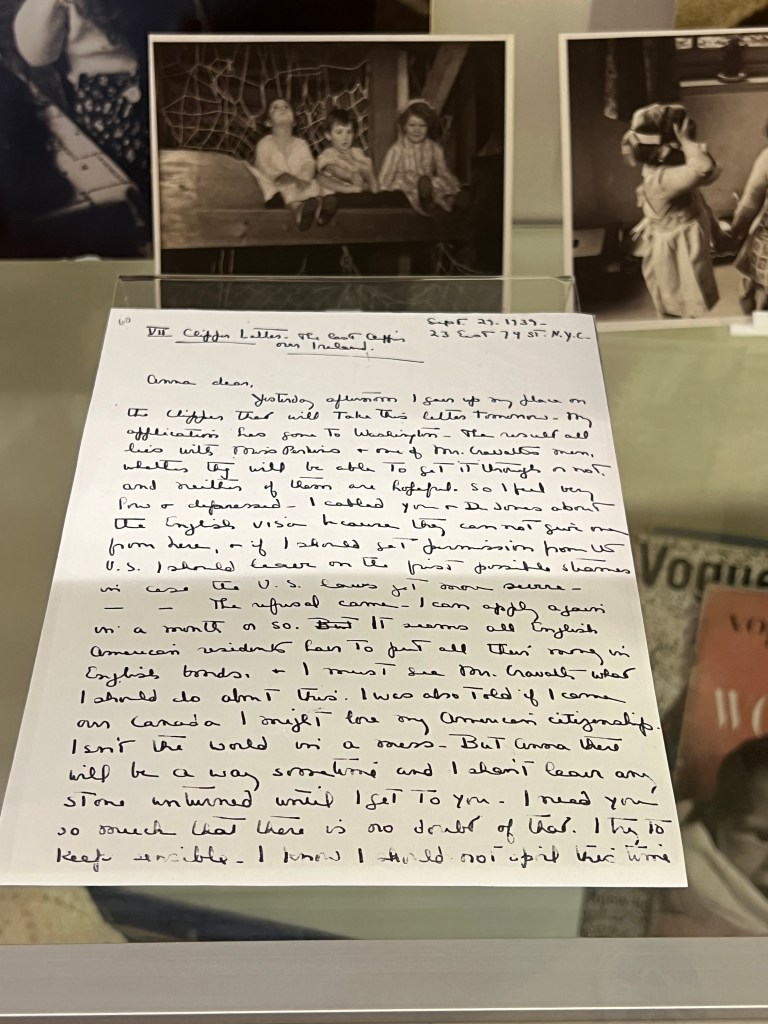 60
VII Clipper Letter. The last Clipper Sept. 29. 1939-
over Ireland. 23 East 74 ST. N.Y.C.-
Anna dear,
Yesterday afternoon I gave up my place on
the Clipper that will take this letter tomorrow- My
application has gone to Washington- The result all
lies with Miss Perkins + one of Mr. Cravath's men,
whether they will be able to get it through or not.
and neither of them are hopeful. So I feel very
low + depressed- I cabled you + Dr. Jones about
the English visa because they can not give one
from here, + if I should get permission from US
U.S. I should leave on the first possible steamer
in case the U.S. laws get more severe-
— — The refusal came- I can apply again
in a month or so. But It seems all English
American residents have to put all their money in
English bonds. + I must see Mr. Cravath what
I should do about this. I was also told if I came
over Canada I might lose my American citizenship.
Isn't the world in a mess- But Anna there
will be a way sometime and I shan't leave any
stone unturned until I get to you- I need you
so much that there is no doubt of that. I try to
keep sensible- I know I should not spoil this time
Vogue
VO
WO